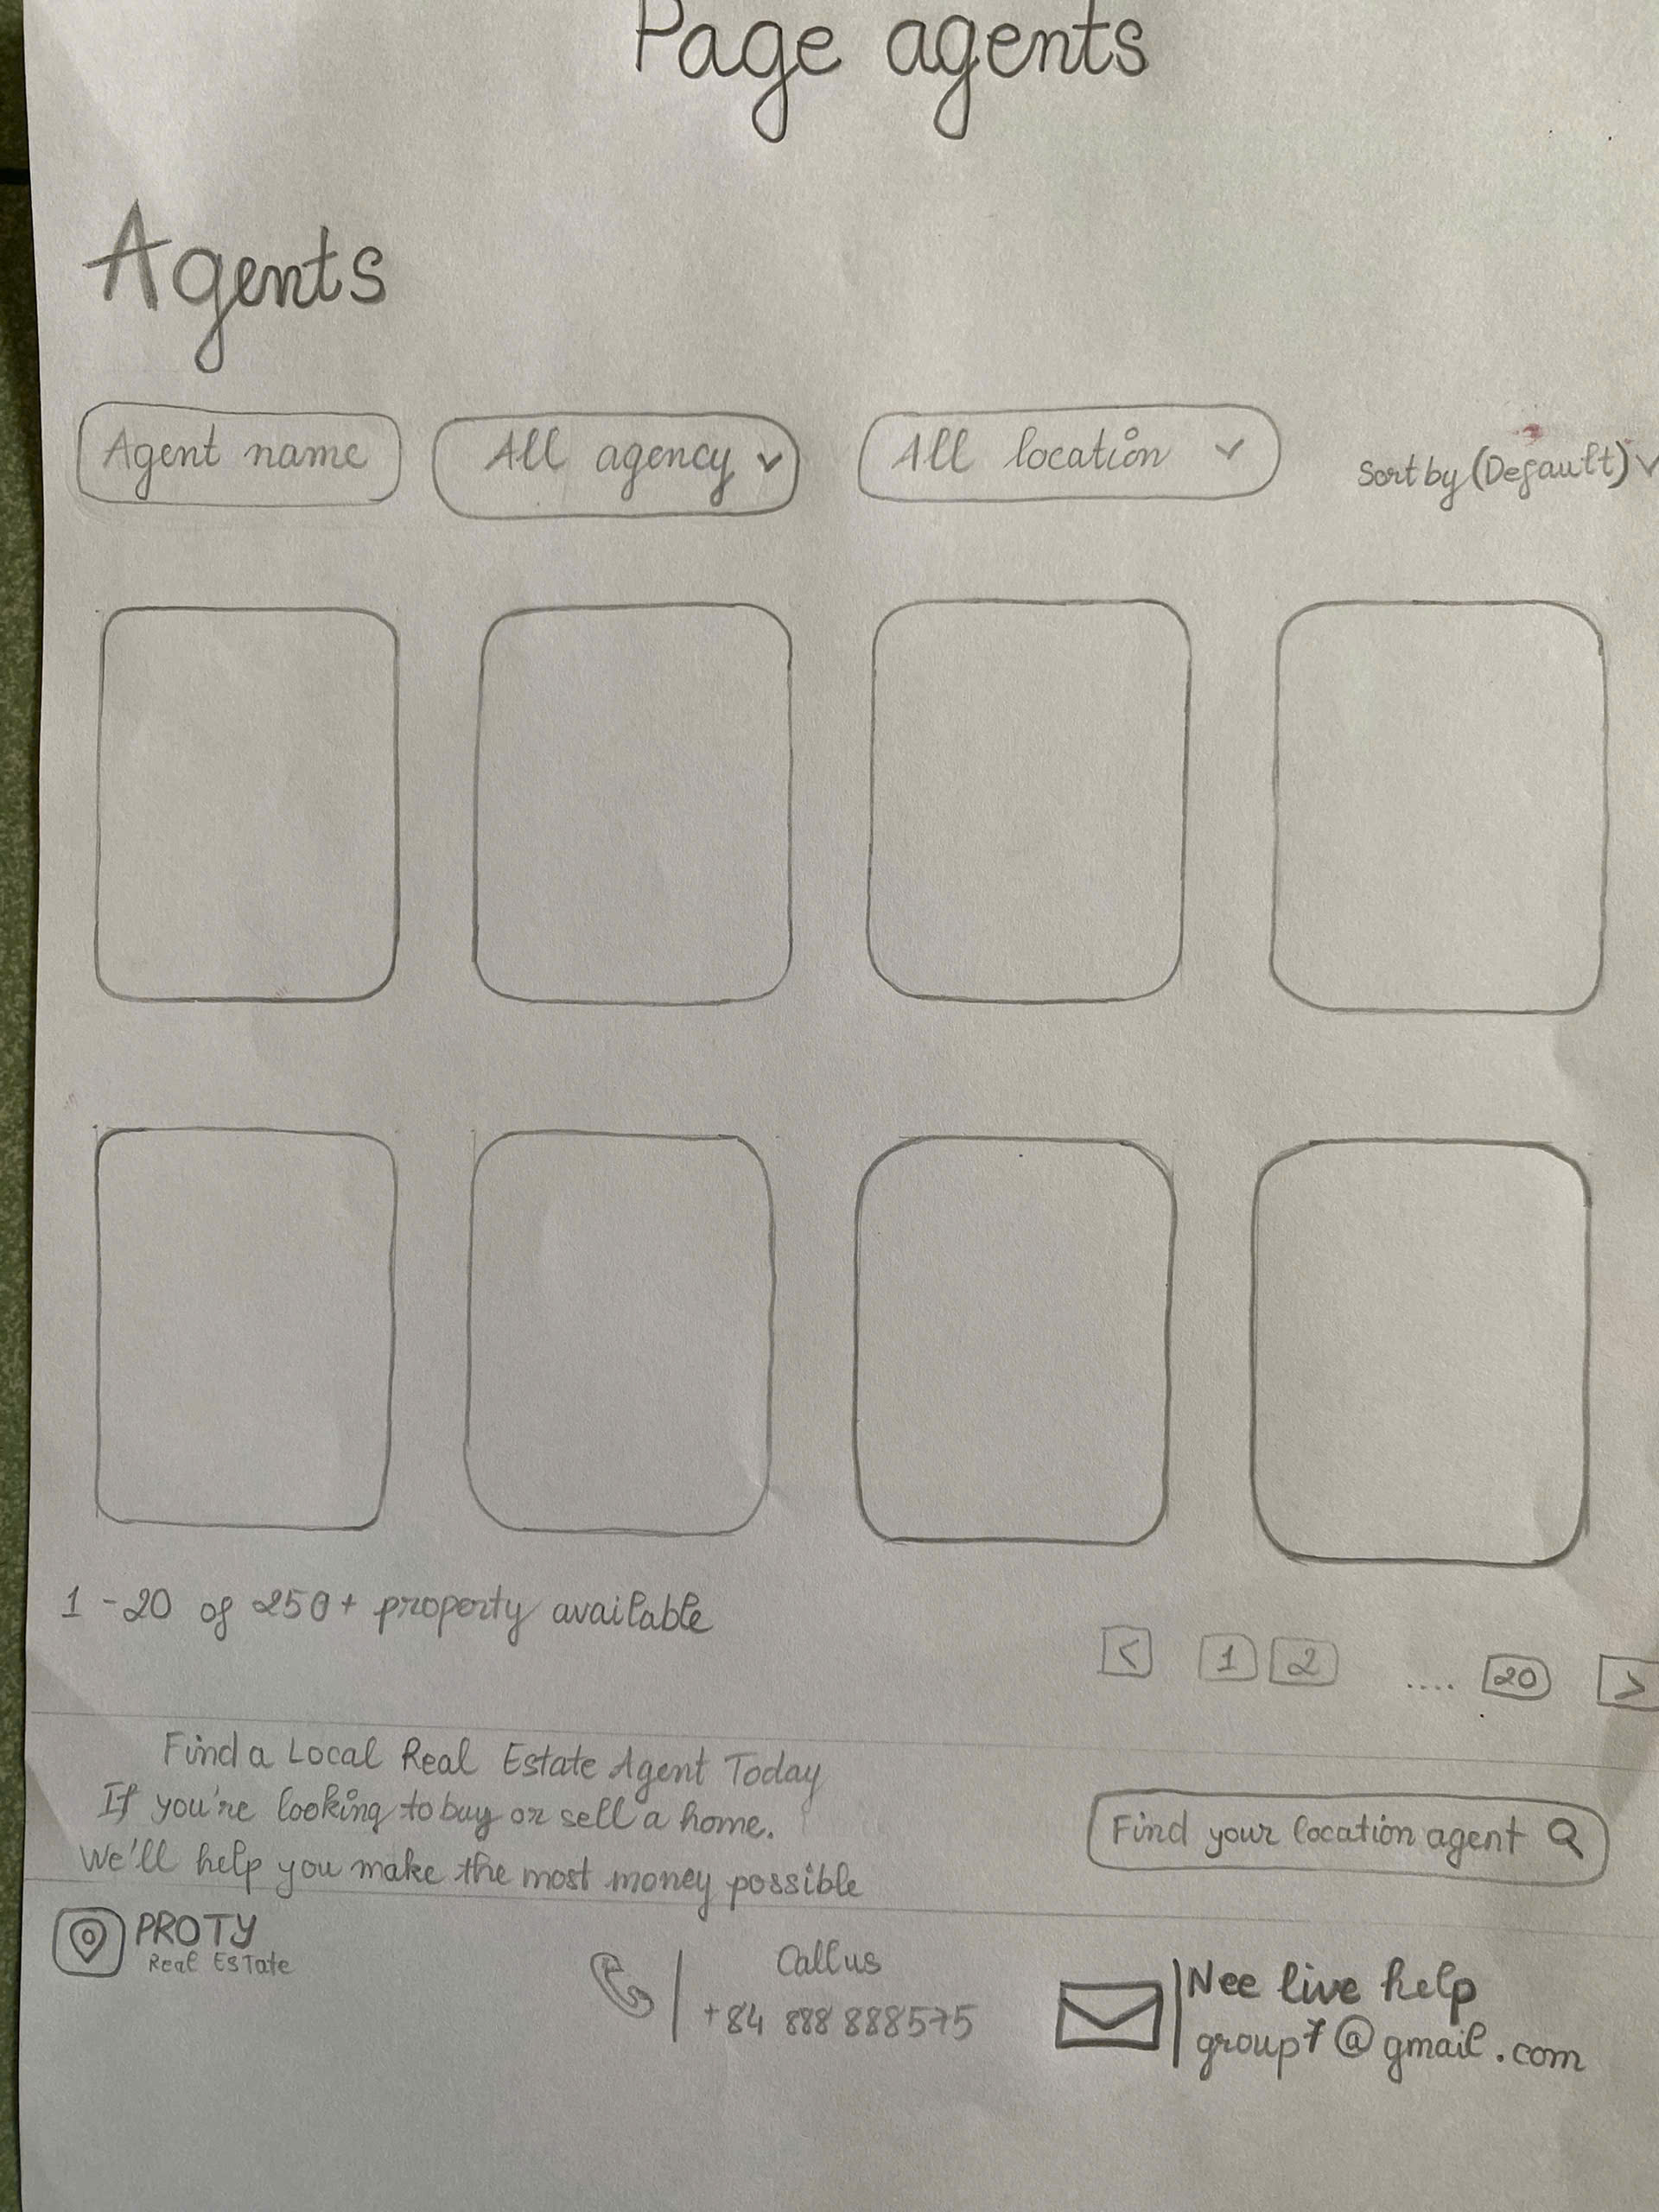 Page agents
Agents
Agent name
All agency
All location
Sort by (Default)
1 - 20 of 250+ property available
<
1
2
....
20
>
Find a Local Real Estate Agent Today
If you're looking to buy or sell a home.
We'll help you make the most money possible
Find your location agent
PROTY
Real EsTate
Call us
+84 888 888575
Nee live help
group7@gmail.com